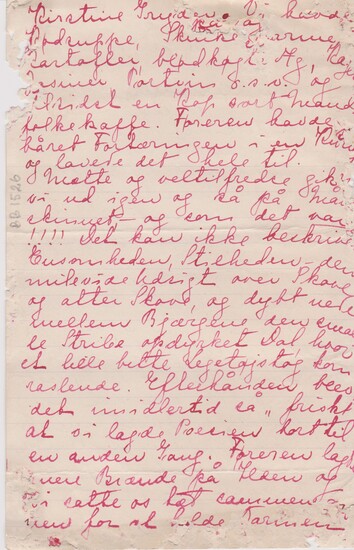 Kirstine Vi havde
Rødruppe, Skinke, varme
Kartofler, blødkogt Æg, Ka
Portvin o.s.v. og
tilsidst en Kop sort Mand
folkekaffe. Føreren havde
båret Fortæringen i en
og lavede det hele til.
Mætte og veltilfredse gik
vi ud igen og så på Måne
skinnet - og som det var
!!!! Det kan ikke beskriv
Ensomheden, Stilheden - den
milevide Udsigt over Skove
og atter Skove, og dybt ned
mellem Bjærgene den smal
le Stribe opdyrket Dal hvor
et lille bitte Legetøjstog kom
raslende. Efterhånden blev
det imidlertid så "friskt
at vi lagde Poesien bort til
en anden Gang. Føreren lagd
mere Brænde på Ilden og
vi satte os tæt sammen -
men for at holde Varmen
BB1526